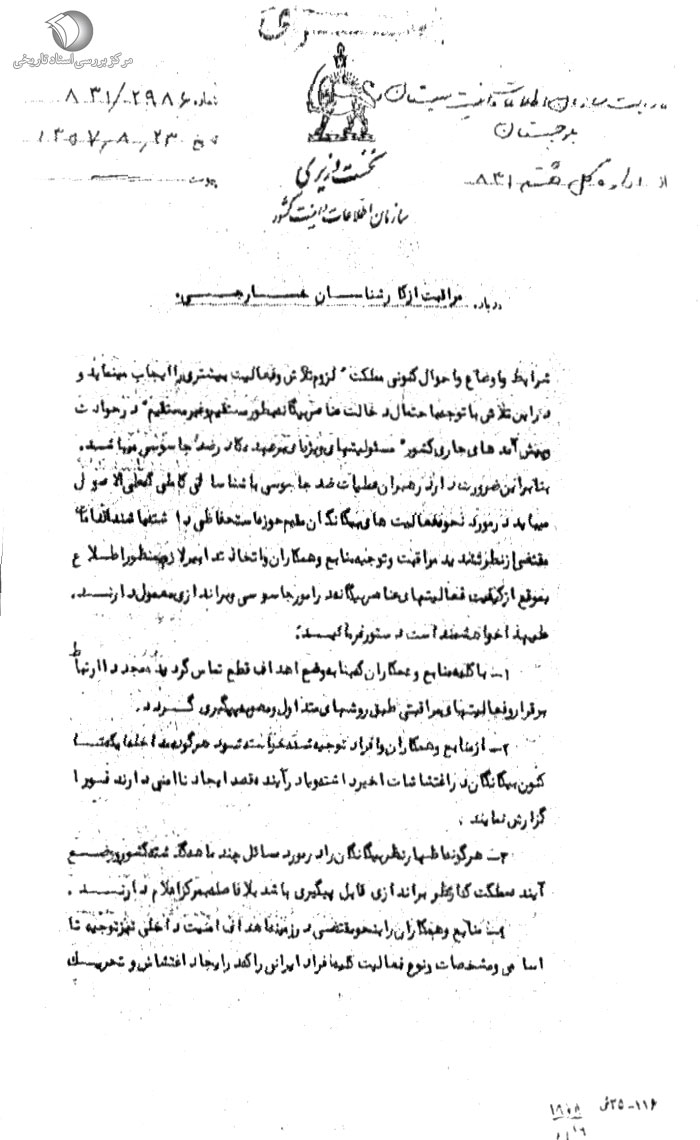 مرکز بررسی اسناد تاریخی
مدیریت سازمان اطلاعات و امنیت سیستان و
بلوچستان
از اداره کل هشتم ۸۳۱
شماره ۸۳۱/۲۹۸۶
تاریخ ۱۳۵۷٫۸٫۲۳
پیوست
نخست وزیری
سازمان اطلاعات و امنیت کشور
درباره مراقبت از کارشناسان خارجی.
شرایط و اوضاع و احوال کنونی مملکت لزوم تلاش و فعالیت بیشتری را ایجاب مینماید و
در این تلاش با توجه به احتمال دخالت عناصر بیگانه بطور مستقیم و غیر مستقیم در حوادث
و پیش آمدهای جاری کشور مسئولیتهای ویژه‌ای بر عهده کادر ضد جاسوسی میباشد.
بنابراین ضرورت دارد رهبران عملیات ضد جاسوسی با شناسائی کاملی که علی الاصول
میباید در مورد نحوه فعالیت های بیگانگان مقیم حوزه استحفاظی داشته باشند اقدامات
مقتضی از نظر تشدید مراقبت و توجیه منابع و همکاران و اتخاذ تدابیر لازم بمنظور اطلاع
بموقع از کیفیت فعالیتهای عناصر بیگانه در امور جاسوسی و براندازی معمول دارند.
علیهذا خواهشمند است دستور فرمائید:
۱- با کلیه منابع و همکاران که بنا به وضع اهداف قطع تماس گردیده مجددا ارتباط
برقرار و فعالیتهای مراقبتی طبق روشهای متداول و مصوبه پیگیری گردد.
۲- از منابع و همکاران و افراد توجیه شده خواسته شود هرگونه مداخله ایکه تا
کنون بیگانگان در اغتشاشات اخیر داشته و یا در آینده قصد ایجاد ناامنی دارند فورا
گزارش نمایند.
۳- هرگونه اظهار نظر بیگانگان را در مورد مسائل چند ماهه گذشته کشور و وضع
آینده مملکت که از نظر براندازی قابل پیگیری باشد بلافاصله بمرکز اعلام دارند.
۴- منابع و همکاران را بنحو مقتضی در زمینه اهداف امنیت داخلی نیز توجیه تا
اسامی و مشخصات و نوع فعالیت کلیه افراد ایرانی را که در ایجاد اغتشاش و تحریک
۱۱۶-۳۵ف